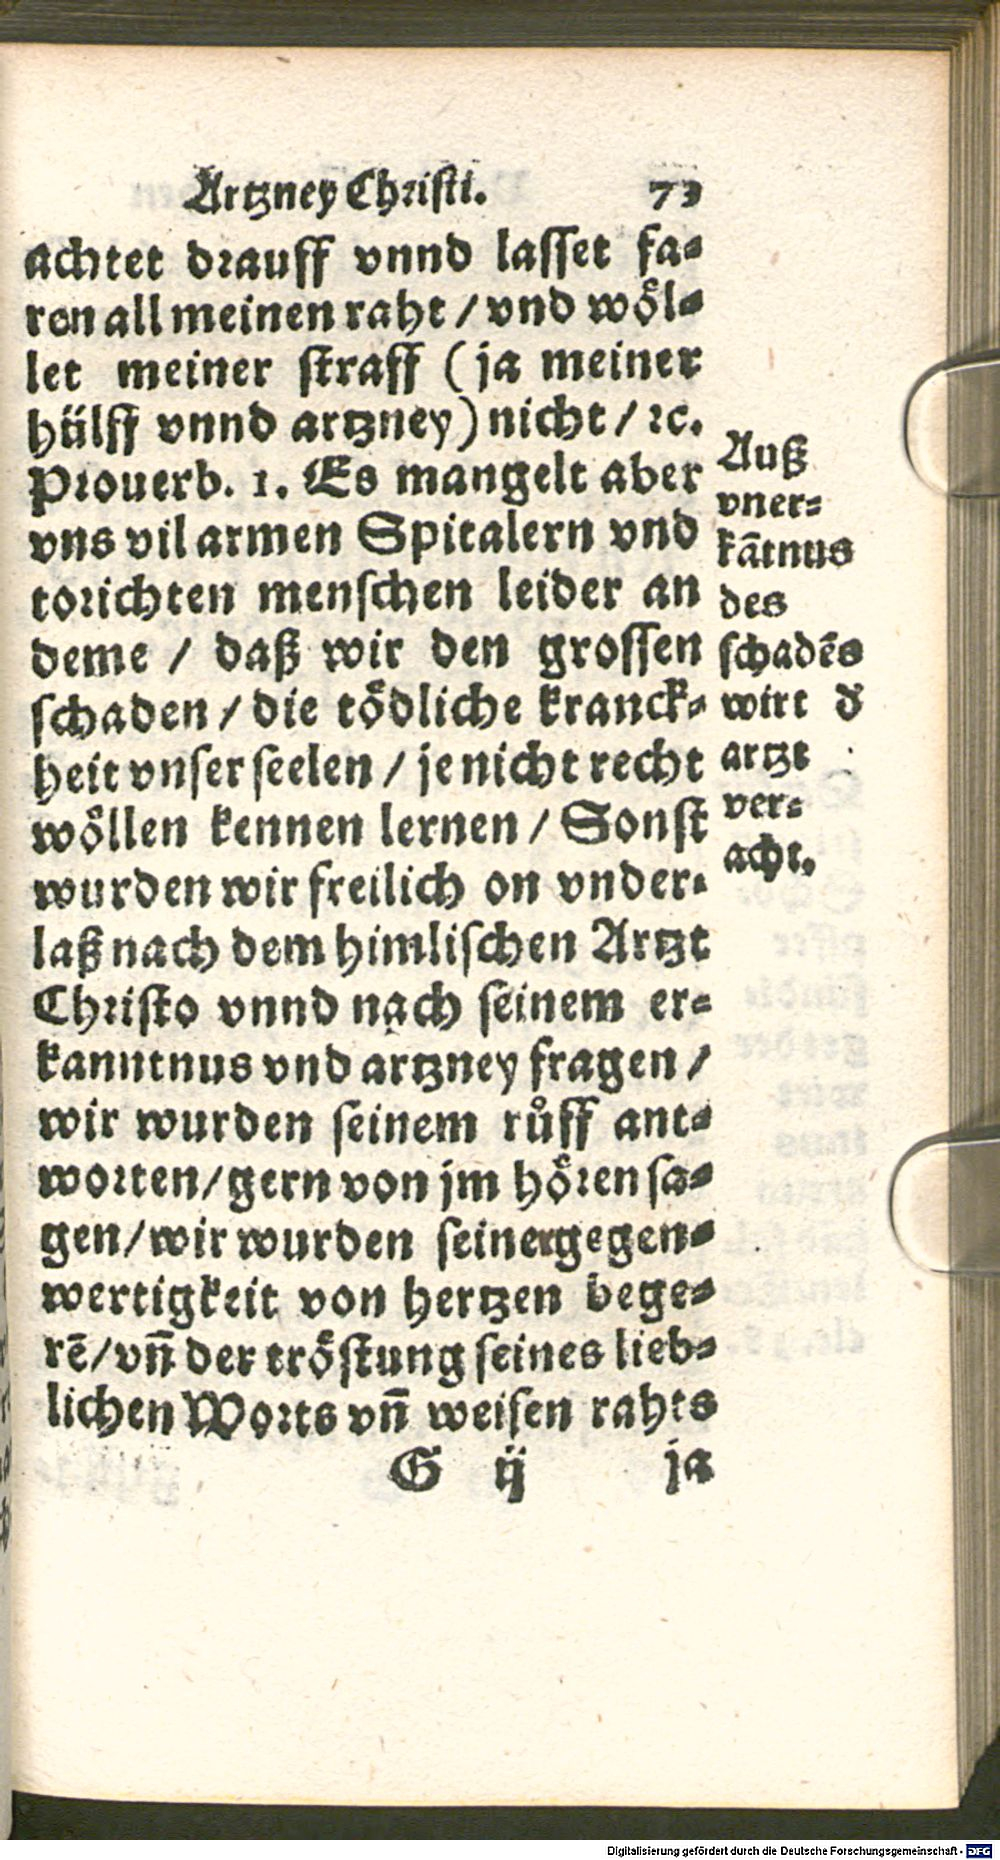 Artzney Christi. 73
achtet drauff vnnd lasset fa-
ren all meinen raht / vnd wöl-
let meiner straff (ja meiner
hülff vnnd artzney) nicht / ꝛc.
Prouerb. 1. Es mangelt aber
vns vil armen Spitalern vnd
torichten menschen leider an
deme / daß wir den grossen
schaden / die tödliche kranck-
heit vnser seelen / je nicht recht
wöllen kennen lernen / Sonst
wurden wir freilich on vnder-
laß nach dem himlischen Artzt
Christo vnnd nach seinem er-
kanntnus vnd artzney fragen /
wir wurden seinem růff ant-
worten / gern von jm hören sa-
gen / wir wurden seiner gegen-
wertigkeit von hertzen bege-
rē / vñ der tröstung seines lieb-
lichen Worts vñ weisen rahts
G ij ja
Auß
vner-
kātnus
des
schadēs
wirt d̕
artzt
ver-
acht.
Digitalisierung gefördert durch die Deutsche Forschungsgemeinschaft - DFG